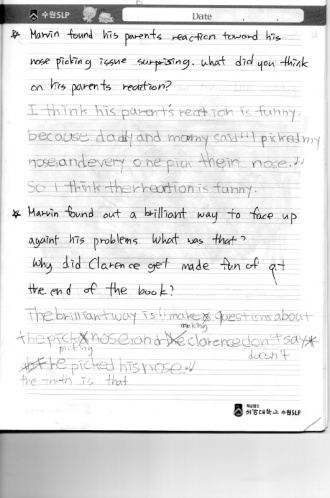 수원SLP
Date . .
☆ Marvin found his parents reaction toward his
nose picking issue surprising. what did you think
on his parents reaction?
I think his parent's reation is funny.
because daddy and mommy said "I picked my
nose and every one pick thein nose."
so I think the reation is funny.
☆ Marvin found out a brilliant way to face up
againt his problems. What was that?
Why did Clarence get made fun of at
the end of the book?
The brilliant way is "make questions about
making
the pick nose and clarence don't say
picking doesn't
he picked his nose."
the truth is that
수원SLP